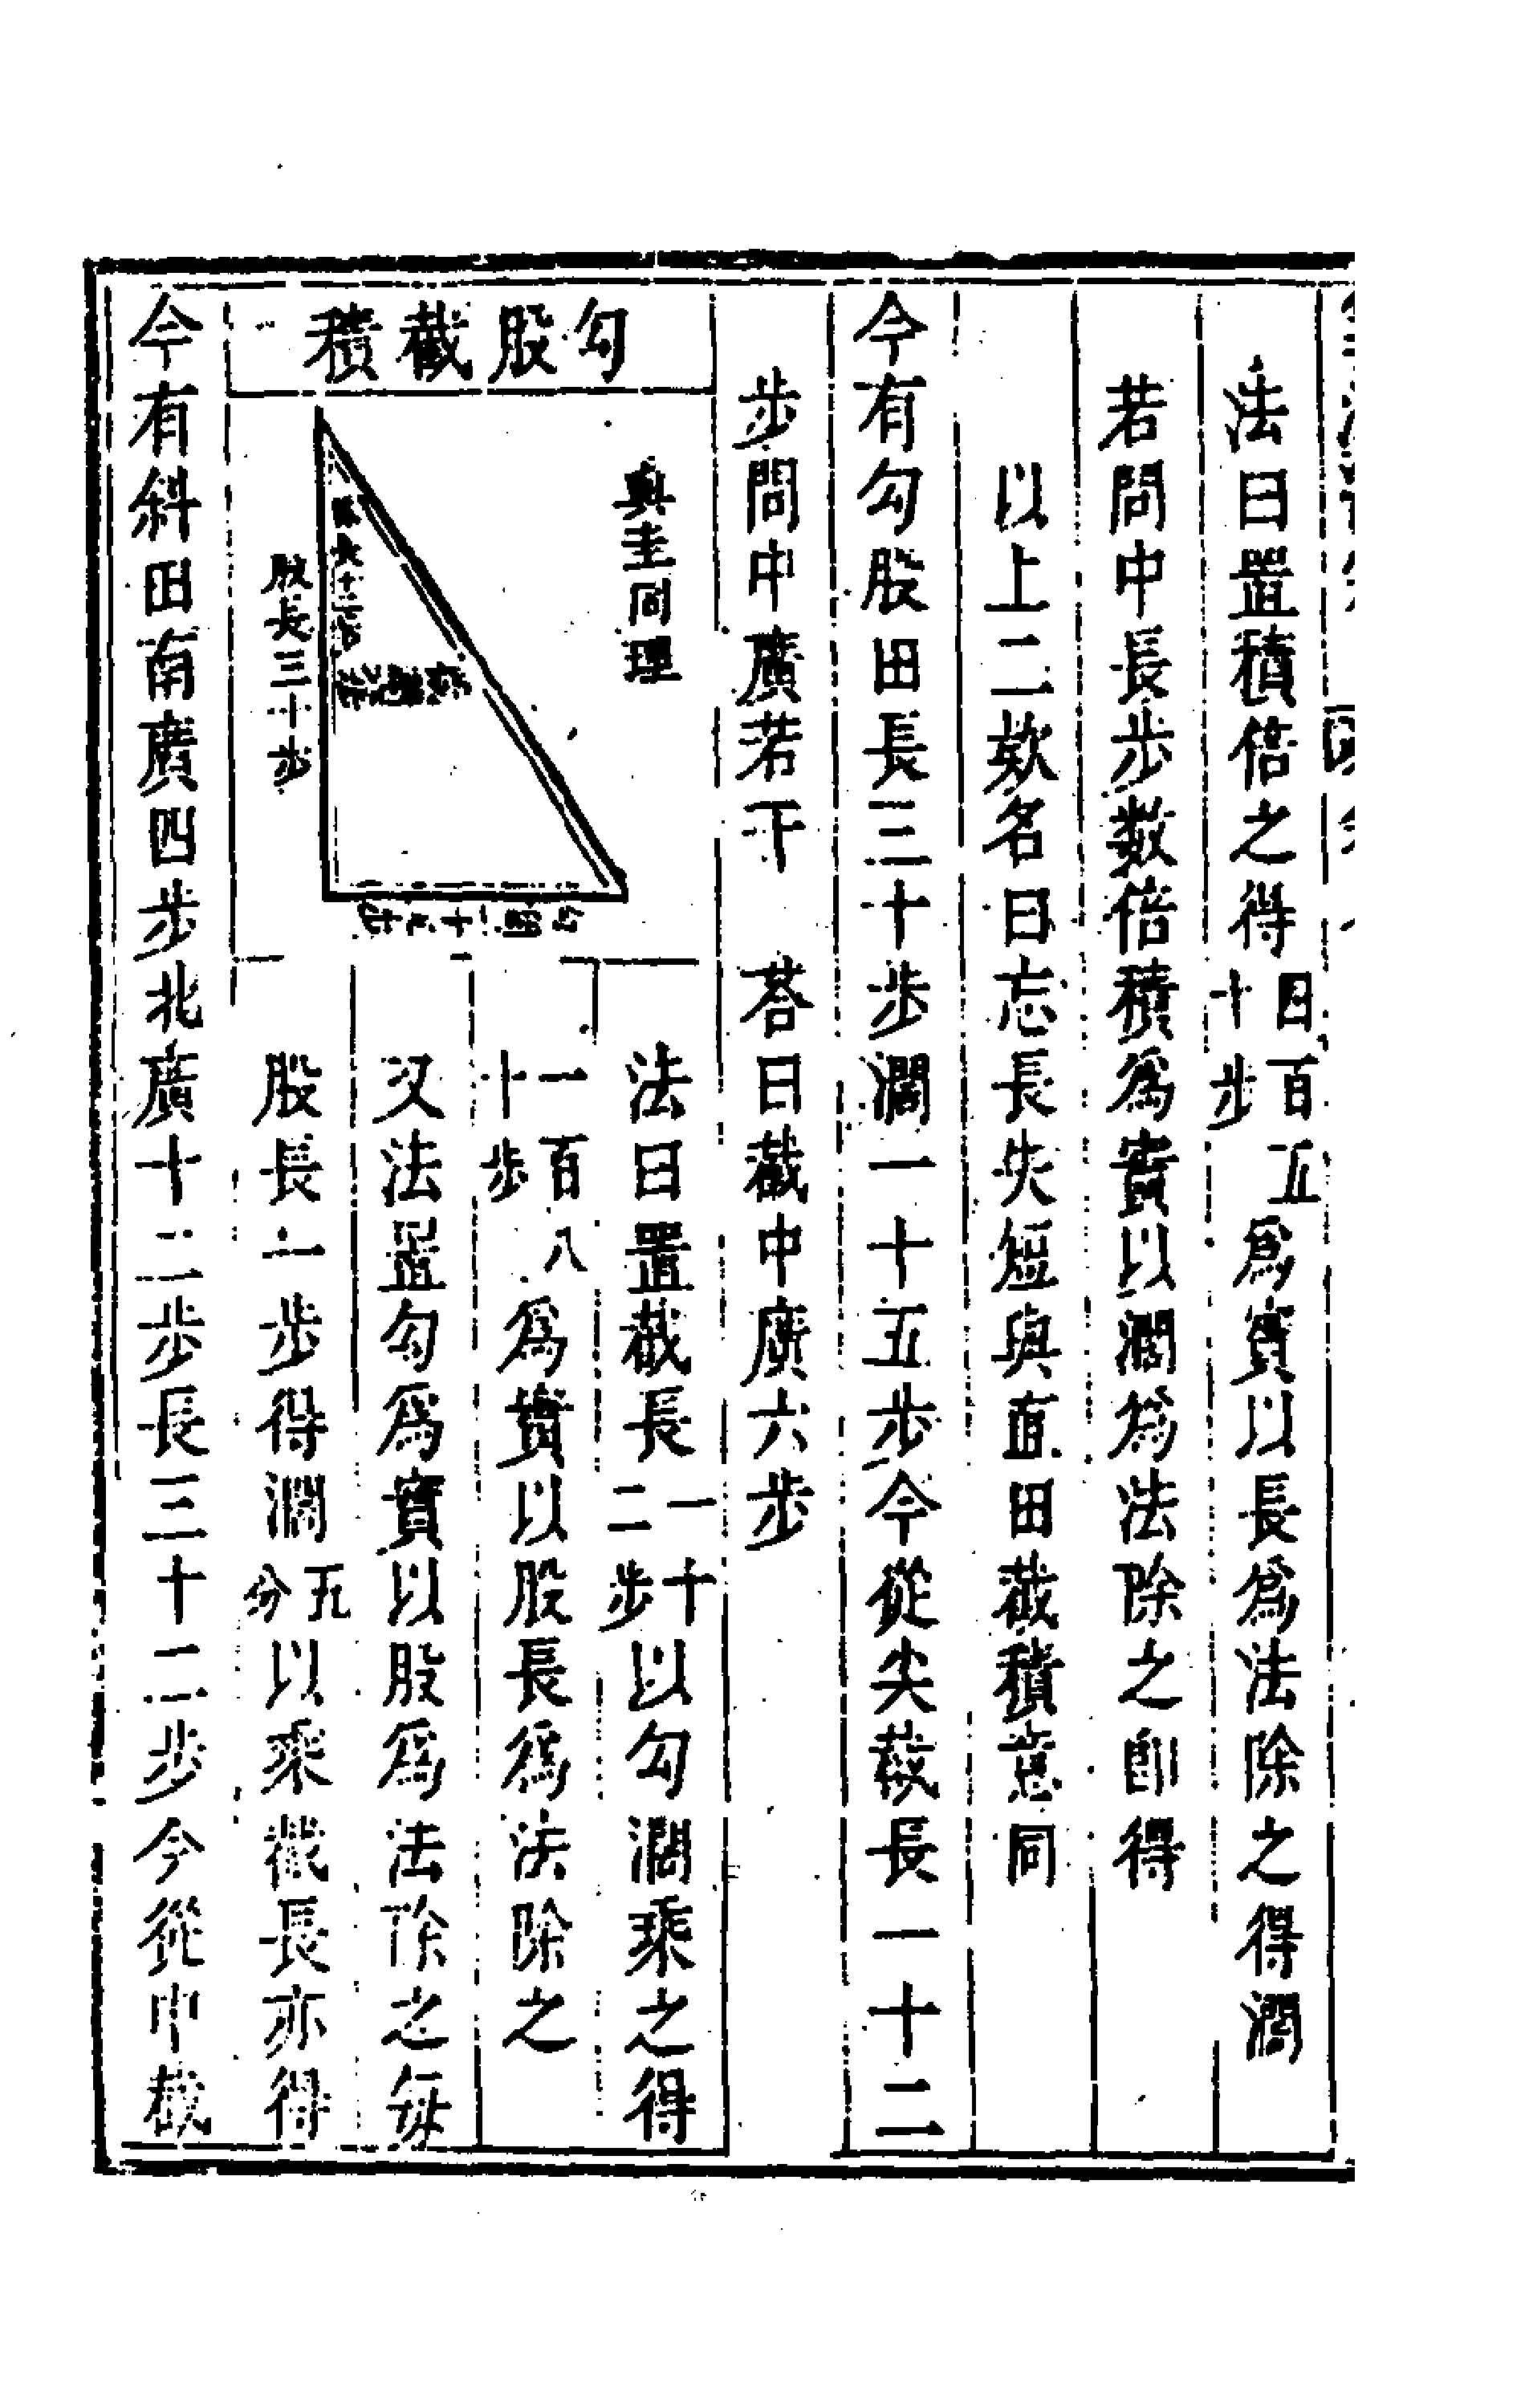 法曰置積倍之得四百五十步爲實以長爲法除之得濶
若問中長步数倍積爲實以濶爲法除之即得
以上二欵名曰忘長失短與直田截積意同
今有勾股田長三十步濶一十五步今從尖截長一十二
步問中廣若干　荅曰截中廣六步
勾股截積
與圭同理
股長三十步
法曰置截長一十二步以勾濶乘之得
一百八十步爲實以股長爲法除之
又法置勾爲實以股爲法除之每
股長一步得濶五分以乘截長亦得
今有斜田南廣四步北廣十二步長三十二步今從中截